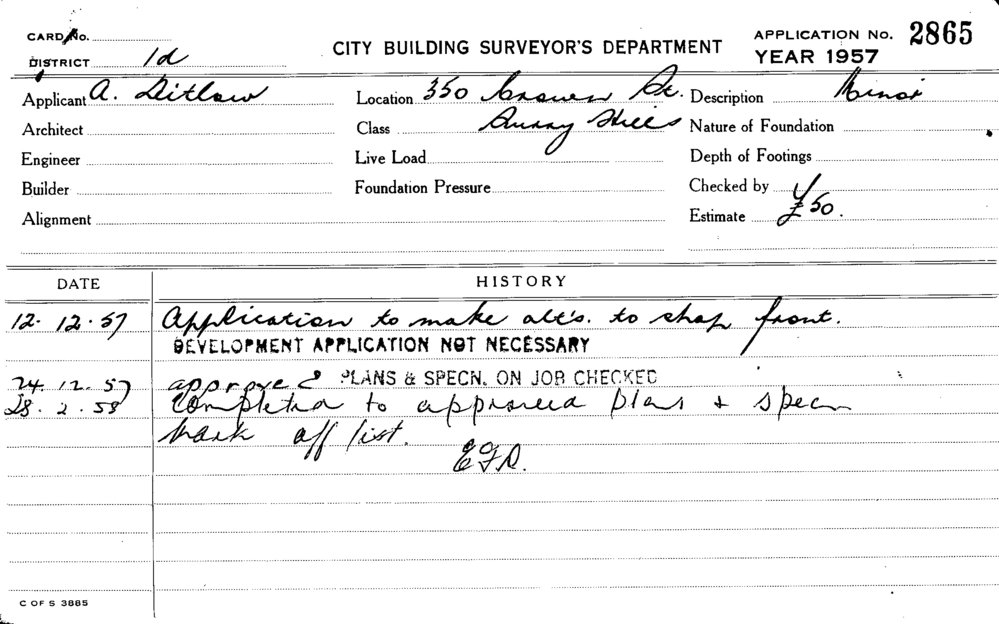 CARD No.
DISTRICT 1d
CITY BUILDING SURVEYOR'S DEPARTMENT
APPLICATION No. 2865
YEAR 1957
Applicant A. Ditlow Location 350 Crown St. Description Minor
Architect Class Surry Hills Nature of Foundation
Engineer Live Load Depth of Footings
Builder Foundation Pressure Checked by
Alignment Estimate £50.
DATE HISTORY
12. 12. 57 Application to make alt's. to shop front.
DEVELOPMENT APPLICATION NOT NECESSARY
24. 12. 57 approved PLANS & SPECN. ON JOB CHECKED
28. 2. 58 Completed to approved plans & specn
Mark off list.
C OF S 3885